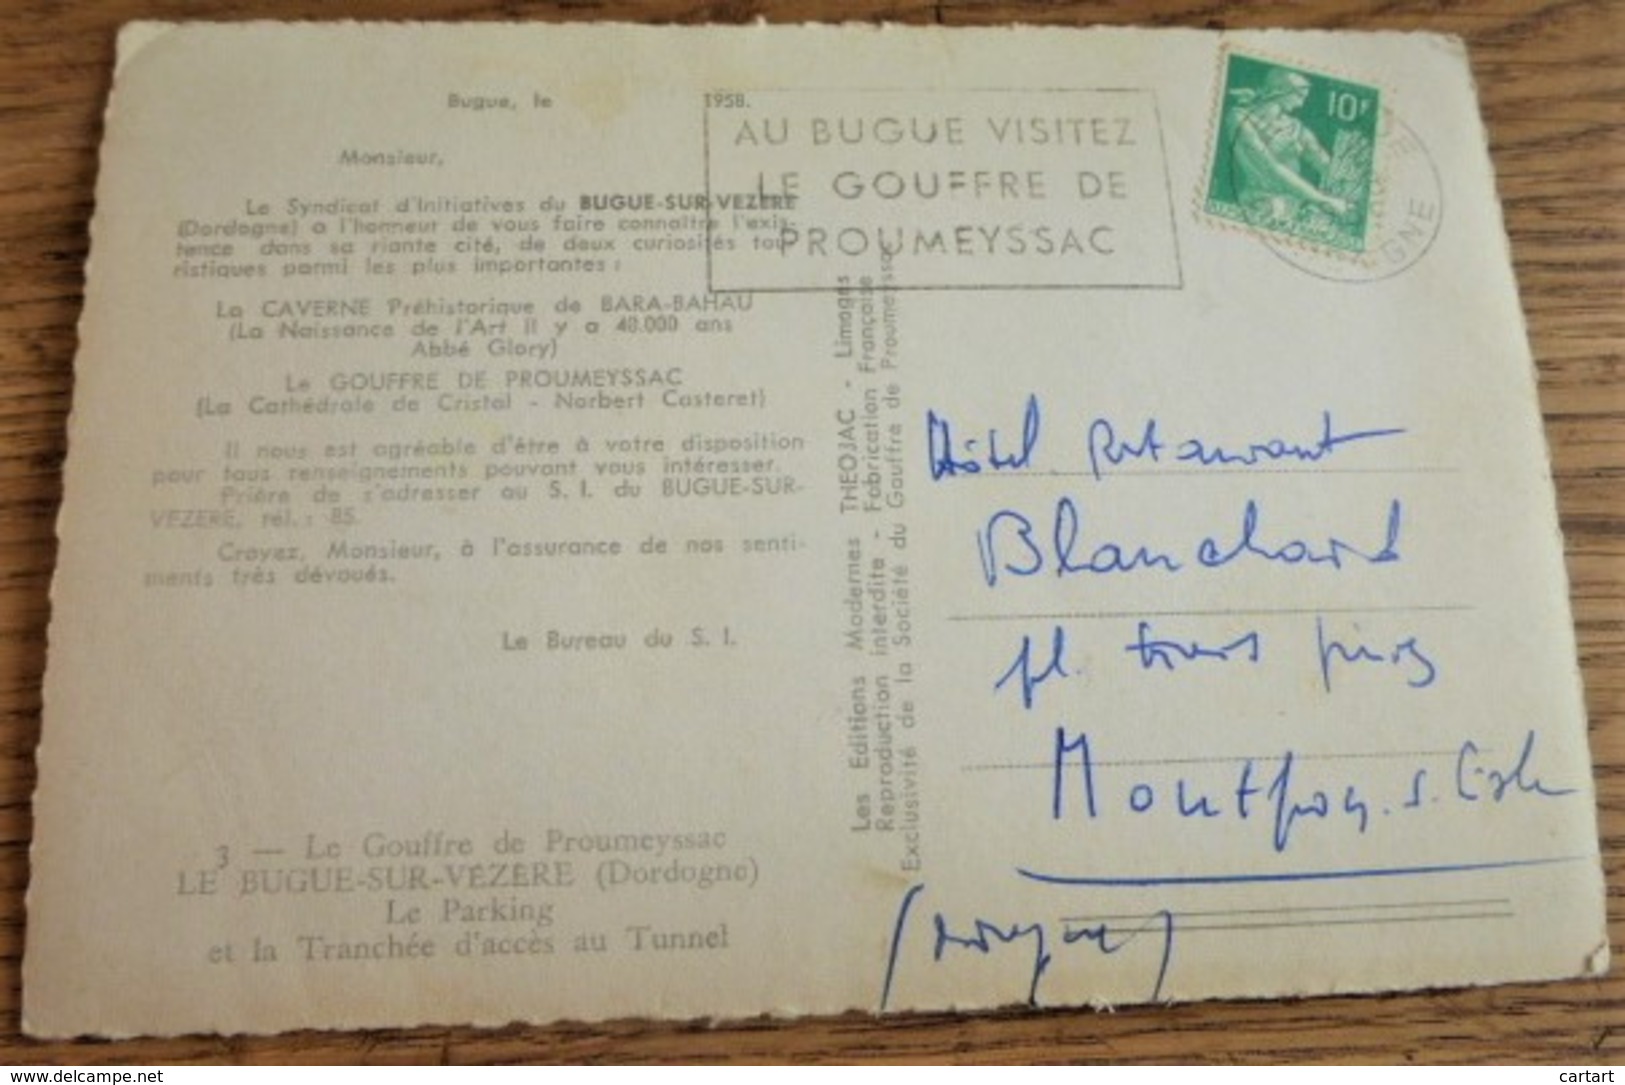 Bugue, le 1958.
Monsieur,
Le Syndicat d'Initiatives du BUGUE-SUR-VEZERE
(Dordogne) a l'honneur de vous faire connaître l'exis-
tence dans sa riante cité, de deux curiosités tou-
ristiques parmi les plus importantes :
La CAVERNE Préhistorique de BARA-BAHAU
(La Naissance de l'Art Il y a 40.000 ans
Abbé Glory)
Le GOUFFRE DE PROUMEYSSAC
(La Cathédrale de Cristal - Norbert Casteret)
Il nous est agréable d'être à votre disposition
pour tous renseignements pouvant vous intéresser.
Prière de s'adresser au S. I. du BUGUE-SUR-
VEZERE, tél. : 85.
Croyez, Monsieur, à l'assurance de nos senti-
ments très dévoués.
Le Bureau du S. I.
3 — Le Gouffre de Proumeyssac
LE BUGUE-SUR-VÉZÈRE (Dordogne)
Le Parking
et la Tranchée d'accès au Tunnel
Les Editions Modernes THEOJAC - Limoges
Reproduction interdite - Fabrication Française
Exclusivité de la Société du Gouffre de Proumeyssac
AU BUGUE VISITEZ
LE GOUFFRE DE
PROUMEYSSAC
10F
GNE
Hôtel Restaurant
Blanchard
pl.
Montpon. s. l'isle
(Dordogne)
www.delcampe.net
cartart